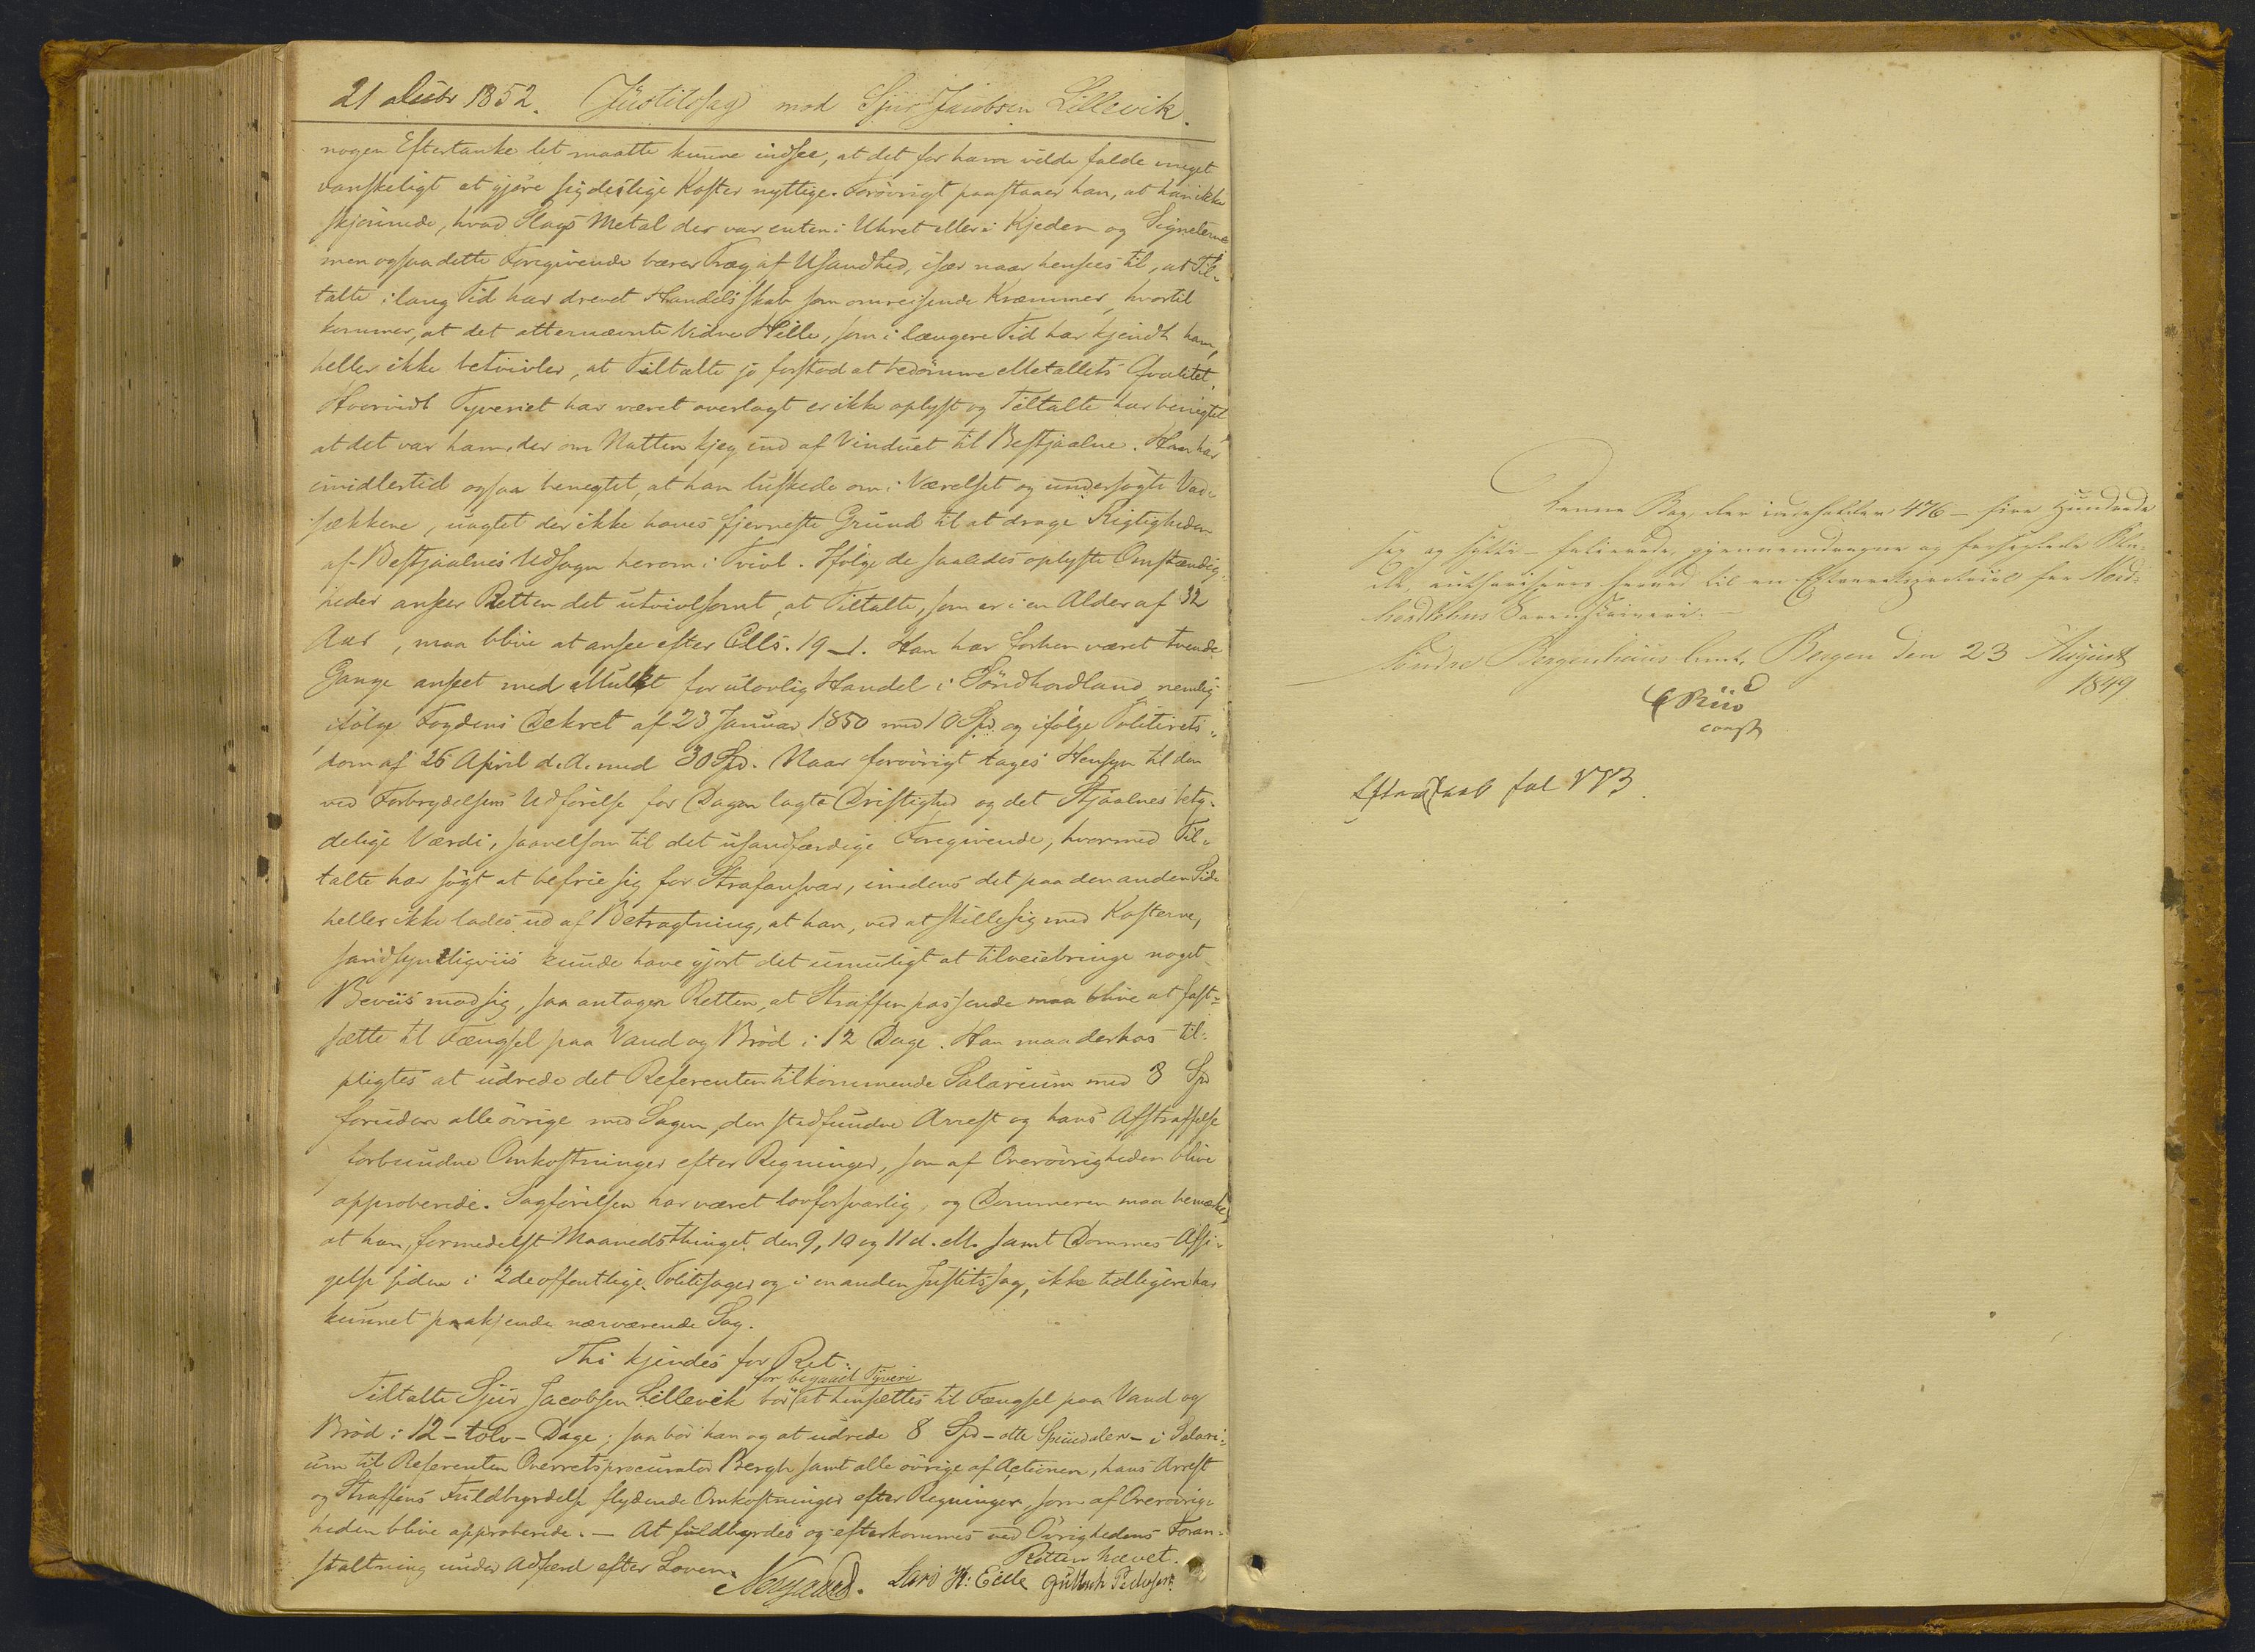 21 Decbr 1852. Justitssag mod Sjur Jacobsen Lillevik.
nogen Eftertanke let maatte kunne indsee, at det for ham vilde falde meget
vanskeligt at gjøre sig deslige Koster nyttige. Forøvrigt paastaaer han, at han ikke
skjønnede, hvad Slags Metal der var enten i Uhret eller i Kjeden og Signeterne
men ogsaa dette Foregivende bærer Præg af Usandhed, især naar hensees til, at Til-
talte i lang Tid har drevet Handelsskab som omreisende Kræmmer, hvortil
kommer, at det atternævnte Vidne Hille, som i længere Tid har kjendt ham,
heller ikke betvivler, at Tiltalte jo forstod at bedømme Metallets Qvalitet.
Hvorvidt Tyveriet har været overlagt er ikke oplyst og Tiltalte har benægtet
at det var ham, der om Natten kjeg ind af Vinduet til Bestjaalne. Han har
imidlertid ogsaa benegtet, at han luskede om i Værelset og undersøgte Vad-
sækkene, uagtet der ikke haves fjerneste Grund til at drage Rigtigheden
af Bestjaalnes Udsagn herom i Tvivl. Ifølge de saaledes oplyste Omstændig-
heder anseer Retten det utvivlsomt, at Tiltalte, som er i en Alder af 32
Aar, maa blive at ansee efter C. Ls. 19-1. Han har forhen været tvende
Gange anseet med Mulkt for ulovlig Handel i Søndhordland, nemlig
ifølge Fogdens Dekret af 23 Januar 1850 med 10 Spd. og ifølge Politirets-
dom af 25 April d. A. med 30 Spd. Naar forøvrigt tages Hensyn til den
ved Forbrydelsens Udførelse for Dagen lagte Dristighed og det Stjaalnes bety-
delige Værdi, saavelsom til det usandfærdige Foregivende, hvormed Til-
talte har søgt at befrie sig for Strafansvar, imedens det paa den anden Side
heller ikke lades ud af Betragtning, at han, ved at skille sig med Kosterne,
sandsynligviis kunde have gjort det umuligt at tilveiebringe noget
Beviis mod sig, saa antager Retten, at Straffen passende maa blive at fast-
sætte til Fængsel paa Vand og Brød i 12 Dage. Han maa derhos til-
pligtes at udrede det Referenten tilkommende Salarium med 8 Spd
foruden alle øvrige med Sagen, den stedfundne Arrest og hans Afstraffelse
forbundne Omkostninger efter Regninger, som af Overøvrigheden blive
approberede. Sagførelsen har været lovforsvarlig, og Dommeren maa bemærke,
at han, formedelst Maanedsthinget den 9, 10 og 11 d. M. samt Dommes Afsi-
gelse siden i 2de offentlige Politisager og i en anden Justitssag, ikke tidligere har
kunnet paakjende nærværende Sag.
Thi kjendes for Ret:
for begaaet Tyveri
Tiltalte Sjur Jacobsen Lillevik bør at hensættes til Fængsel paa Vand og
Brød i 12 - tolv - Dage; saa bør han og at udrede 8 Spd - otte Speciedaler - i Salari-
um til Referenten Overretsprocurator Bergh samt alle øvrige af Actionen, hans Arrest
og Straffens Fuldbyrdelse flydende Omkostninger efter Regninger, som af Overøvrig-
heden blive approberede. - At fuldbyrdes og efterkommes ved Øvrighedens Foran-
staltning under Adfærd efter Loven.
Retten hævet.
Lars H: Eide Gullach Pedersen
Denne Bog, der indeholder 476 - fire Hundrede
sex og sytti - folierede, gjennemdragne og forseglede Bla-
de, authoriseres herved til en Extraretsprotocol for Nord-
hordlehns Sorenskriveri. -
Søndre Bergenhuus Amt, Bergen den 23 August
1849
Riis
const
Eftersaae fol 173.